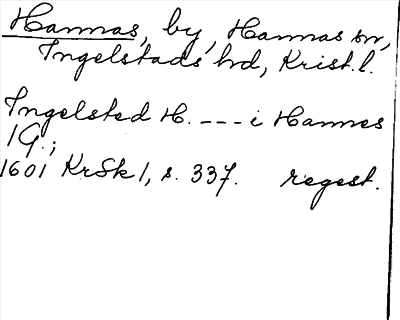 Hannas, by, Hannas sn,
Ingelstads hd, Krist. l.
Ingelsted H. --- i Hannes
1 G.;
1601 KrSk 1, s. 337. regest.